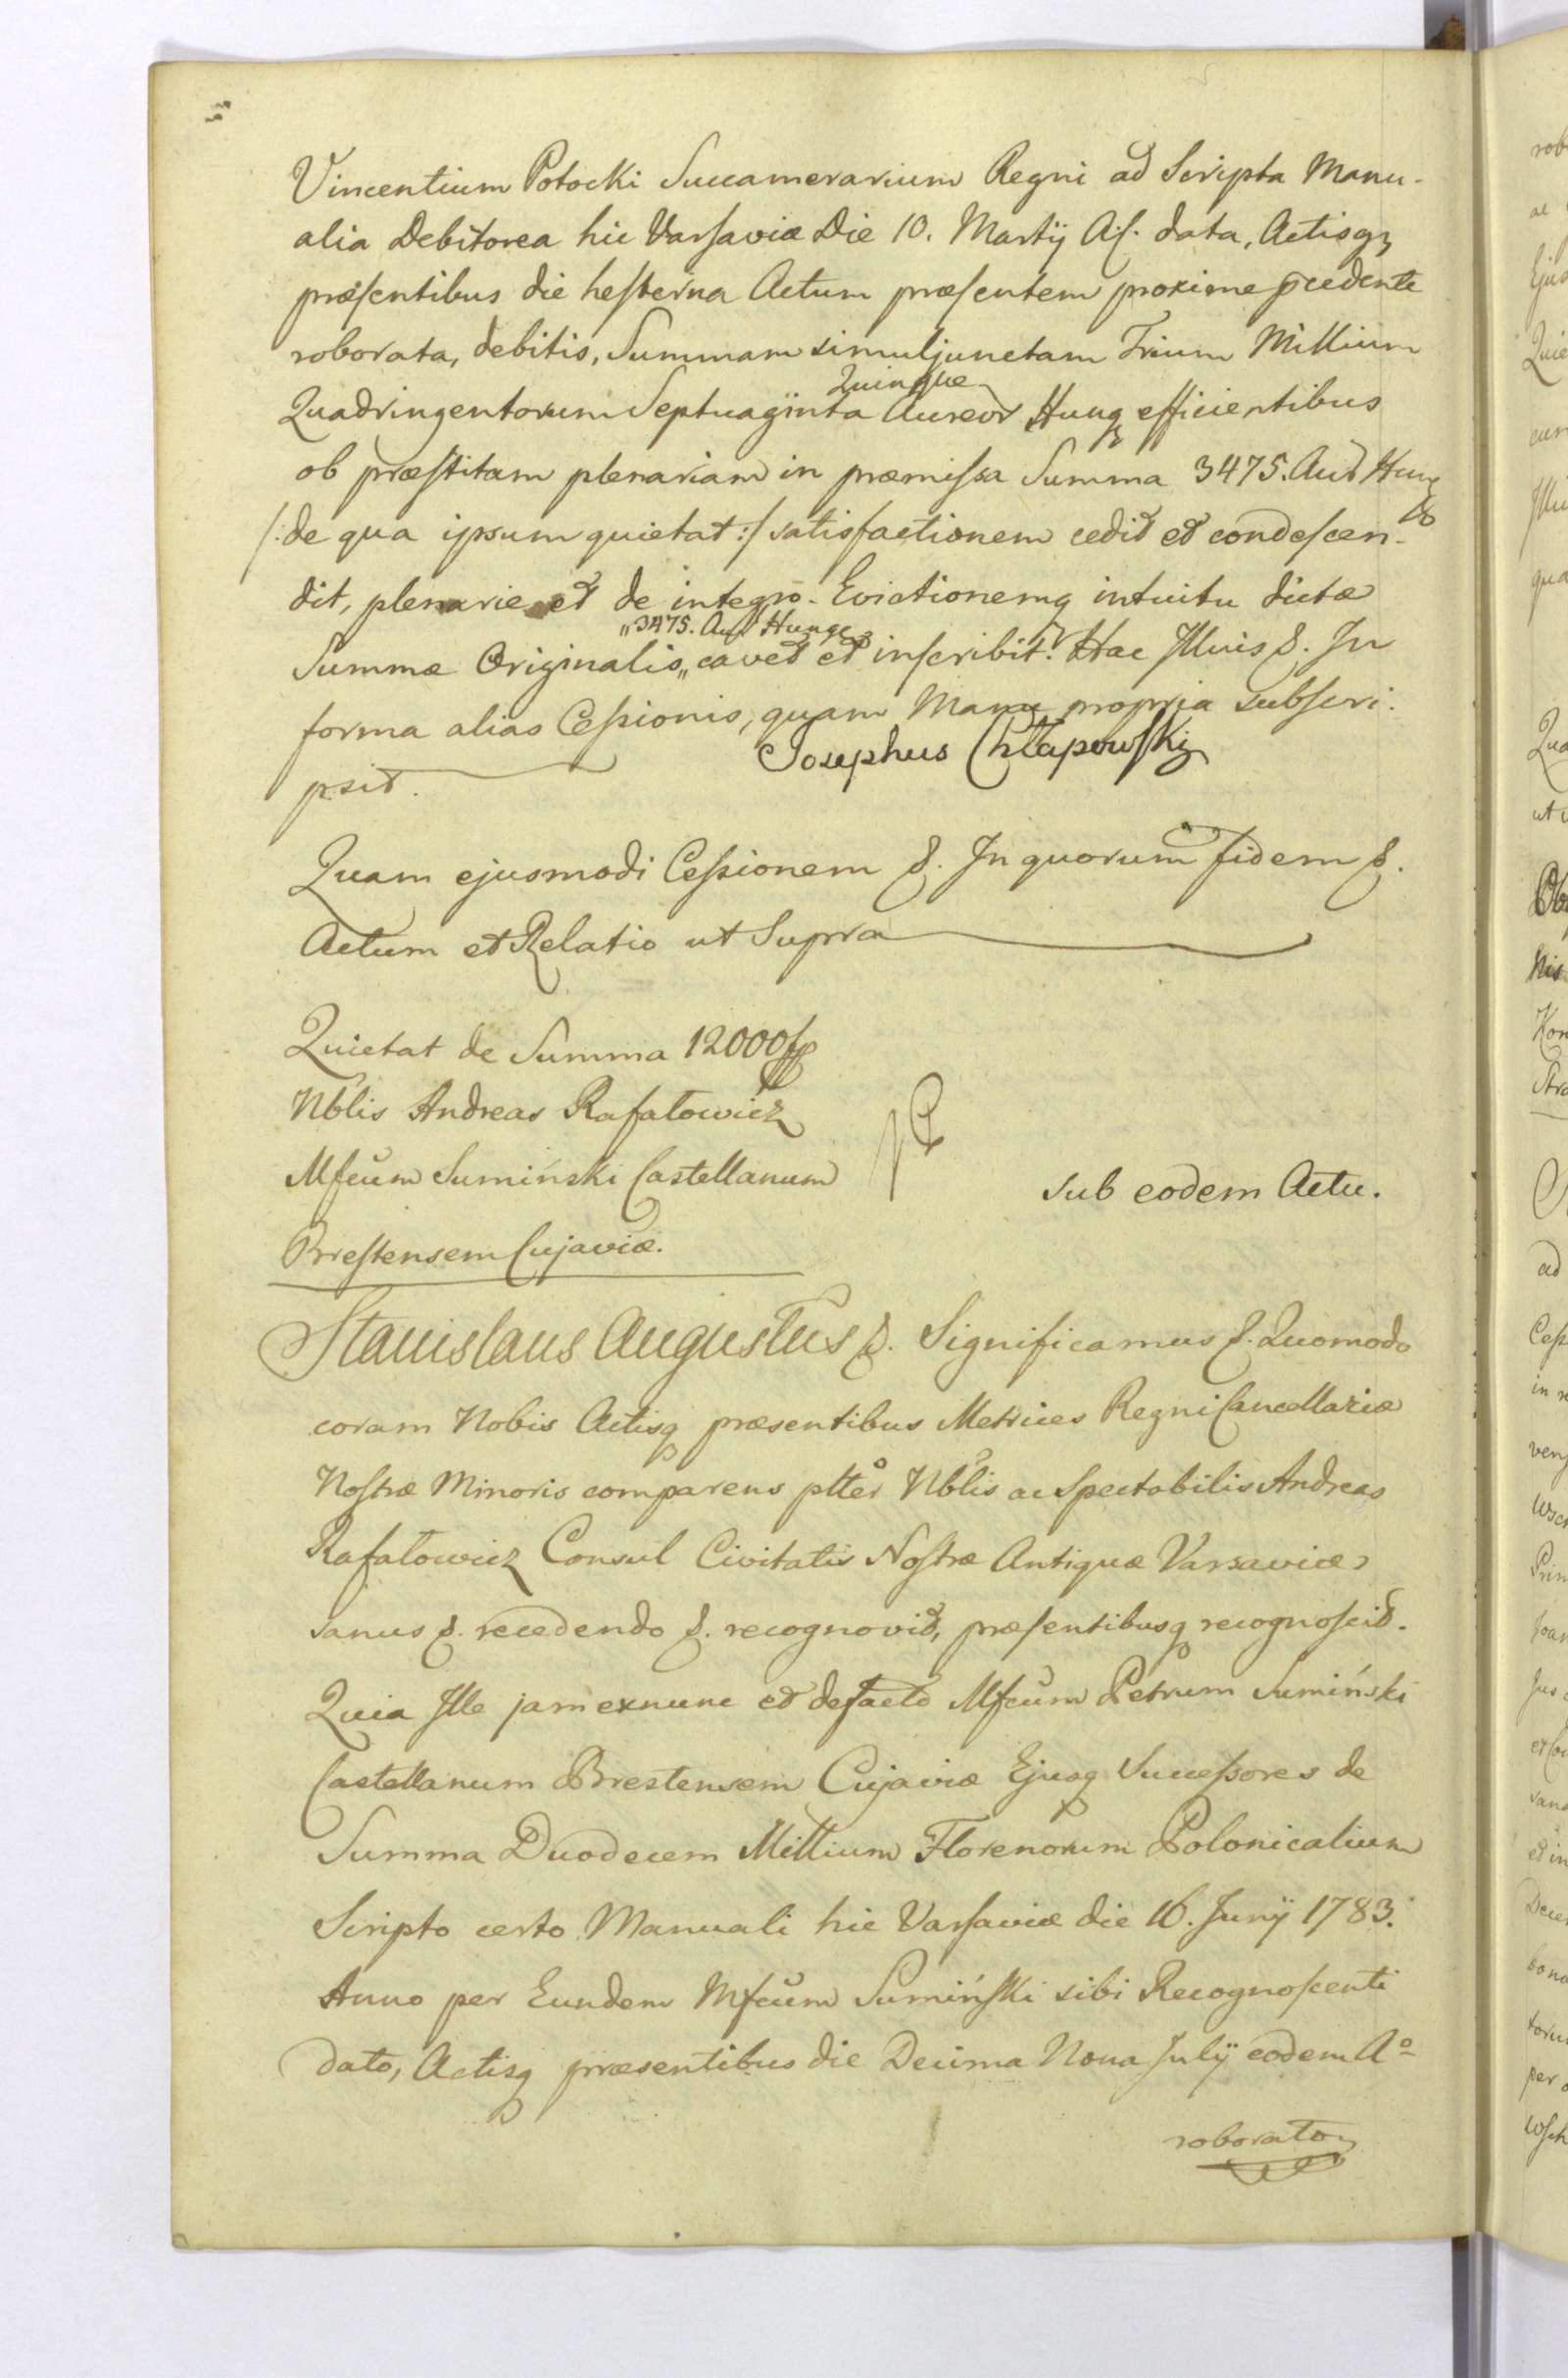 Vincentium Potocki Succamerarium Regni ad Scripta Manu-
alia Debitorea hic Varsaviæ Die 10. Martij A.C. data, Actisq3
præsentibus die hesterna Actum præsentem proxime pcedente
roborata, debitis, Summam simuljunctam Trium Millium
Quinque
Quadringentorum Septuaginta Aureor Hung efficientibus
ob præstitam plenariam in præmissa Summa 3475. Aur Hung
/: de qua ipsum quietat :/ satisfactionem cedit et condescen-
dit, plenarie et de integro. Evictionemq intuitu dictæ
„3475. Aur Hung
Summæ Originalis „ cavet et inscribit. Hac Illius &. In
forma alias Cessionis, quam Manu propria subscri-
psit. Josephus Chłapowski
Quam ejusmodi Cessionem &. In quorum fidem &.
Actum et Relatio ut Supra
Quietat de Summa 12000 fp
Nblis Andreas Rafałowicz
Mfcum Sumiński Castellanum
sub eodem Actu.
Brestensem Cujaviæ.
Stanislaus Augustus &. Significamus &. Quomodo
coram Nobis Actisq præsentibus Metrices Regni Cancellariæ
Nostræ Minoris comparens pltter Nblis ac Spectabilis Andreas
Rafałowicz Consul Civitatis Nostræ Antiquæ Varsaviæ,
sanus &. recedendo &. recognovit, præsentibusq recognoscit.
Quia Ille jam exnunc et defacto Mfcum Petrum Sumiński
Castellanum Brestensem Cujaviæ Ejusq Successores de
Summa Duodecem Millium Florenorum Polonicalium
Scripto certo Manuali hic Varsaviæ die 16. Junij 1783.
Anno per Eundem Mfcum Sumiński sibi Recognoscenti
dato, Actisq præsentibus die Decima Nona Julij eodem Aº
roborato